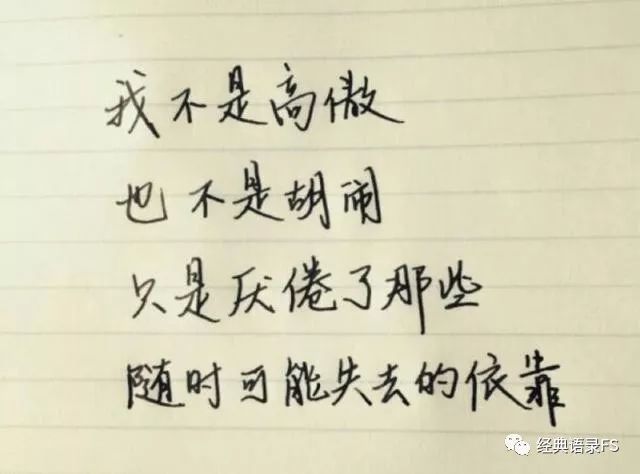 我不是高傲
也不是胡闹
只是厌倦了那些
随时可能失去的依靠
经典语录FS